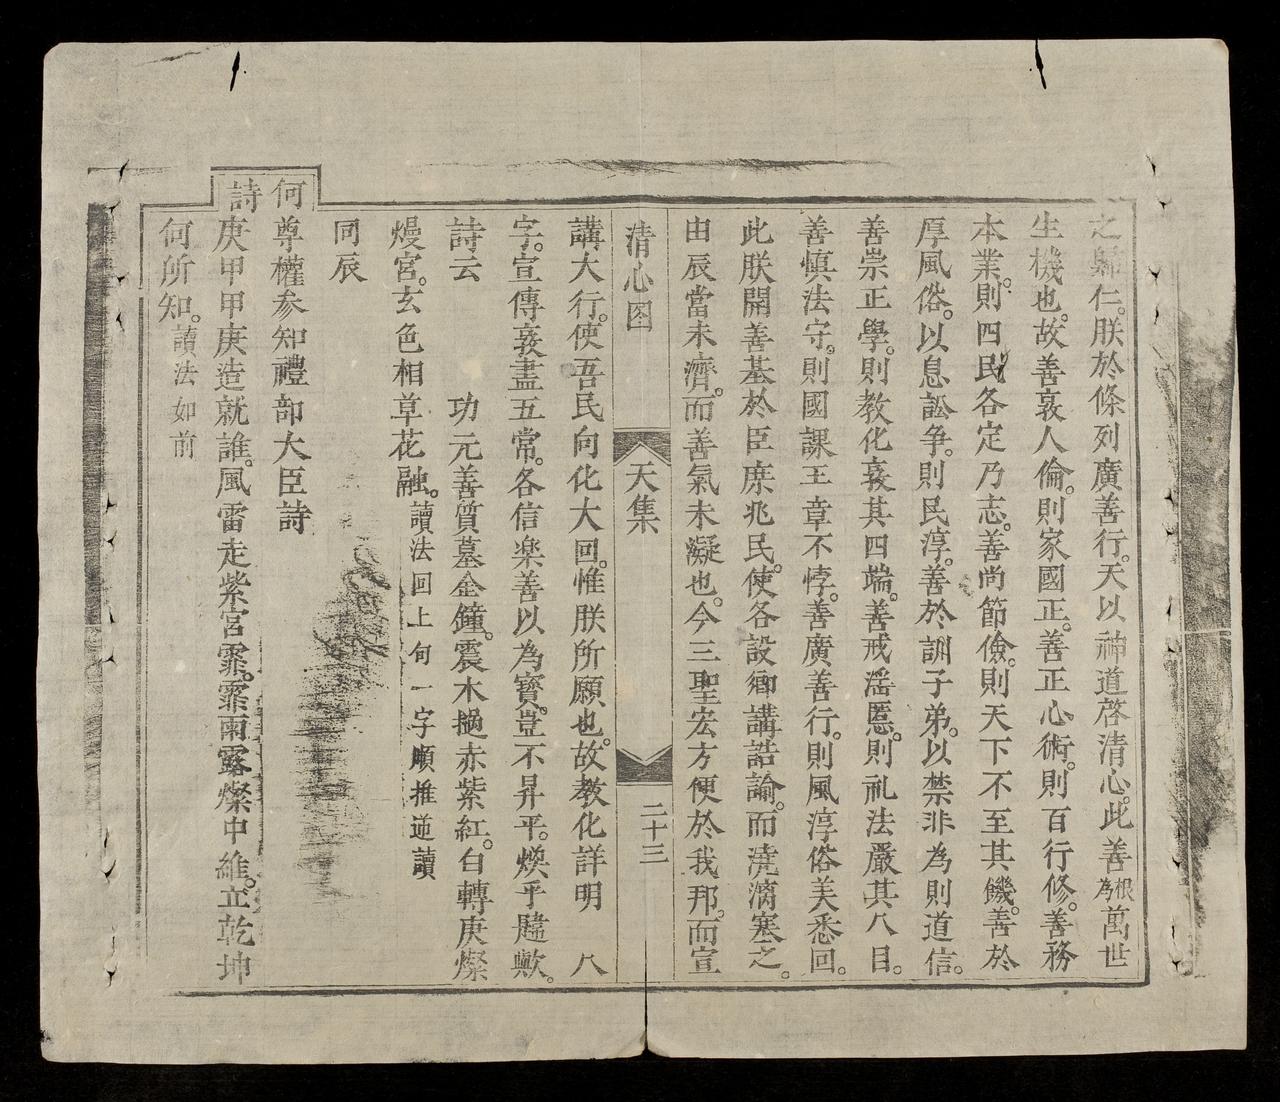 之歸仁。朕於條列廣善行。天以神道啓清心。此善根為萬世
生機也。故善敦人倫。則家國正。善正心術。則百行修。善務
本業。則四民各定乃志。善尚節儉。則天下不至其饑。善於
厚風俗。以息訟爭。則民淳。善於訓子弟。以禁非為則道信。
善崇正學。則教化敦其四端。善戒滛慝。則礼法嚴其八目。
善慎法守。則國課王章不悖。善廣善行。則風淳俗美悉回。
此朕開善基於臣庶兆民。使各設鄉講誥諭。而澆漓塞之。
由辰當未濟。而善氣未凝也。今三聖宏方便於我邦。而宣
清心图
天集
二十三
講大行。使吾民向化大回。惟朕所願也。故教化詳明 八
字。宣傳敦盡五常。各信楽善以為寳。豈不昇平。煥乎韙歟。
詩云 功元善質墓金鐘。震木撾赤紫紅。白轉庚燦
熳宮。玄色相草花融。讀法回上旬一字順推逆讀
同辰
何尊權參知禮部大臣詩
詩庚甲甲庚造就誰。風雷走紫宮霏。霏雨露燦中維。立乾坤
何所知。讀法如前